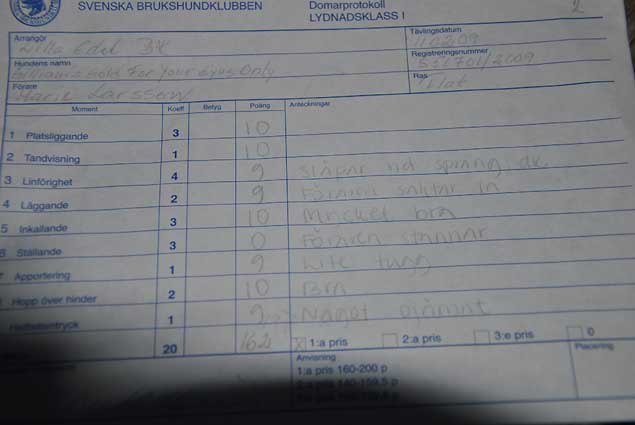 SVENSKA BRUKSHUNDKLUBBEN
Domarprotokoll
LYDNADSKLASS I
2
Arrangör
Lilla Edet BK
Tävlingsdatum
Hundens namn
Gold For Your Eyes Only
Registreringsnummer
S51701/2009
Förare
Marie Larsson
Ras
Flat
Moment Koeff Betyg Poäng Anteckningar
1 Platsliggande 3 10
2 Tandvisning 1 10
3 Linförighet 4 9
4 Läggande 2 9 Föraren in
5 Inkallande 3 10 Mycket bra
6 Ställande 3 0 Föraren stannar
7 Apportering 1 9 Lite tugg
Hopp över hinder 2 10 Bra
Helhetsintryck 1 9 Något ojämnt
20 162 X 1:a pris 2:a pris 3:e pris 0
Anvisning Placering
1:a pris 160-200 p
2:a pris 140-159,5 p